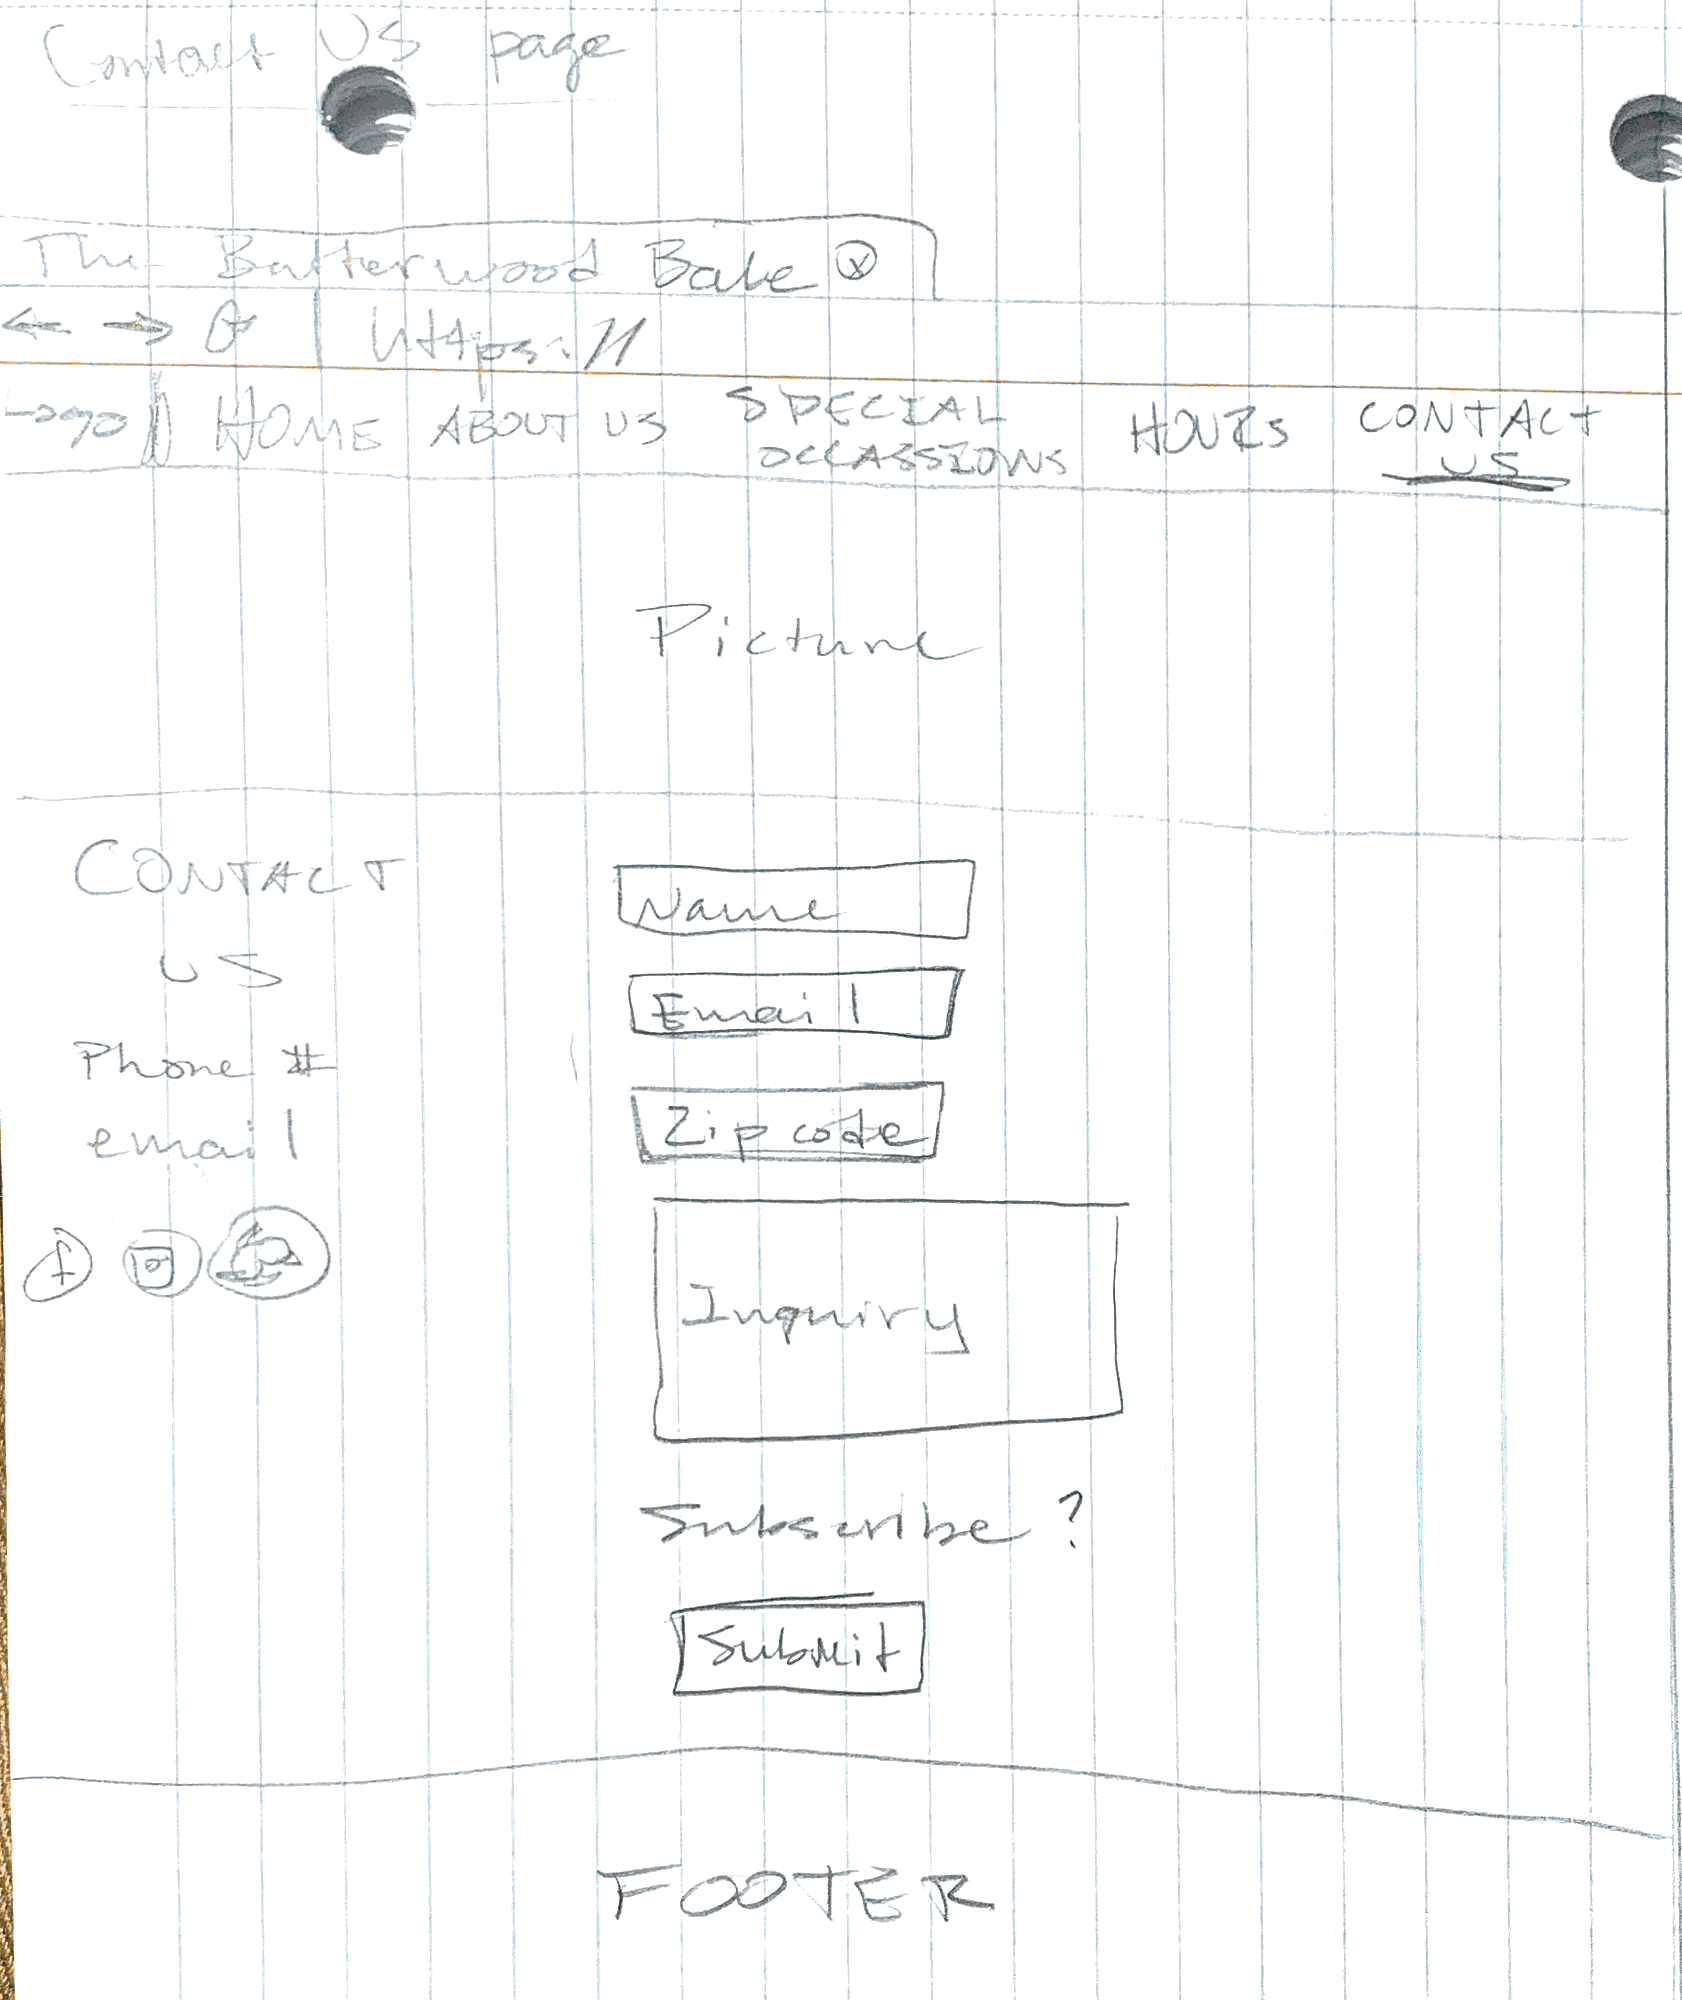 Contact US page
The Batterwood Bake ⓧ
← → https://
Logo HOME ABOUT US SPECIAL OCCASSIONS HOURS CONTACT US
Picture
CONTACT
US
Phone #
email
f
Name
Email
Zip code
Inquiry
Subscribe?
Submit
FOOTER